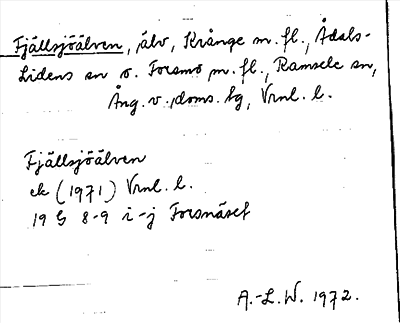 Fjällsjöälven, älv, Krånge m. fl., Ådals-
Lidens sn o. Forsmo m. fl., Ramsele sn,
Ång. v. doms. bg, Vrnl. l.
Fjällsjöälven
ek (1971) Vrnl. l.
19 G 8-9 i-j Forsnäset
A.-L. W. 1972.